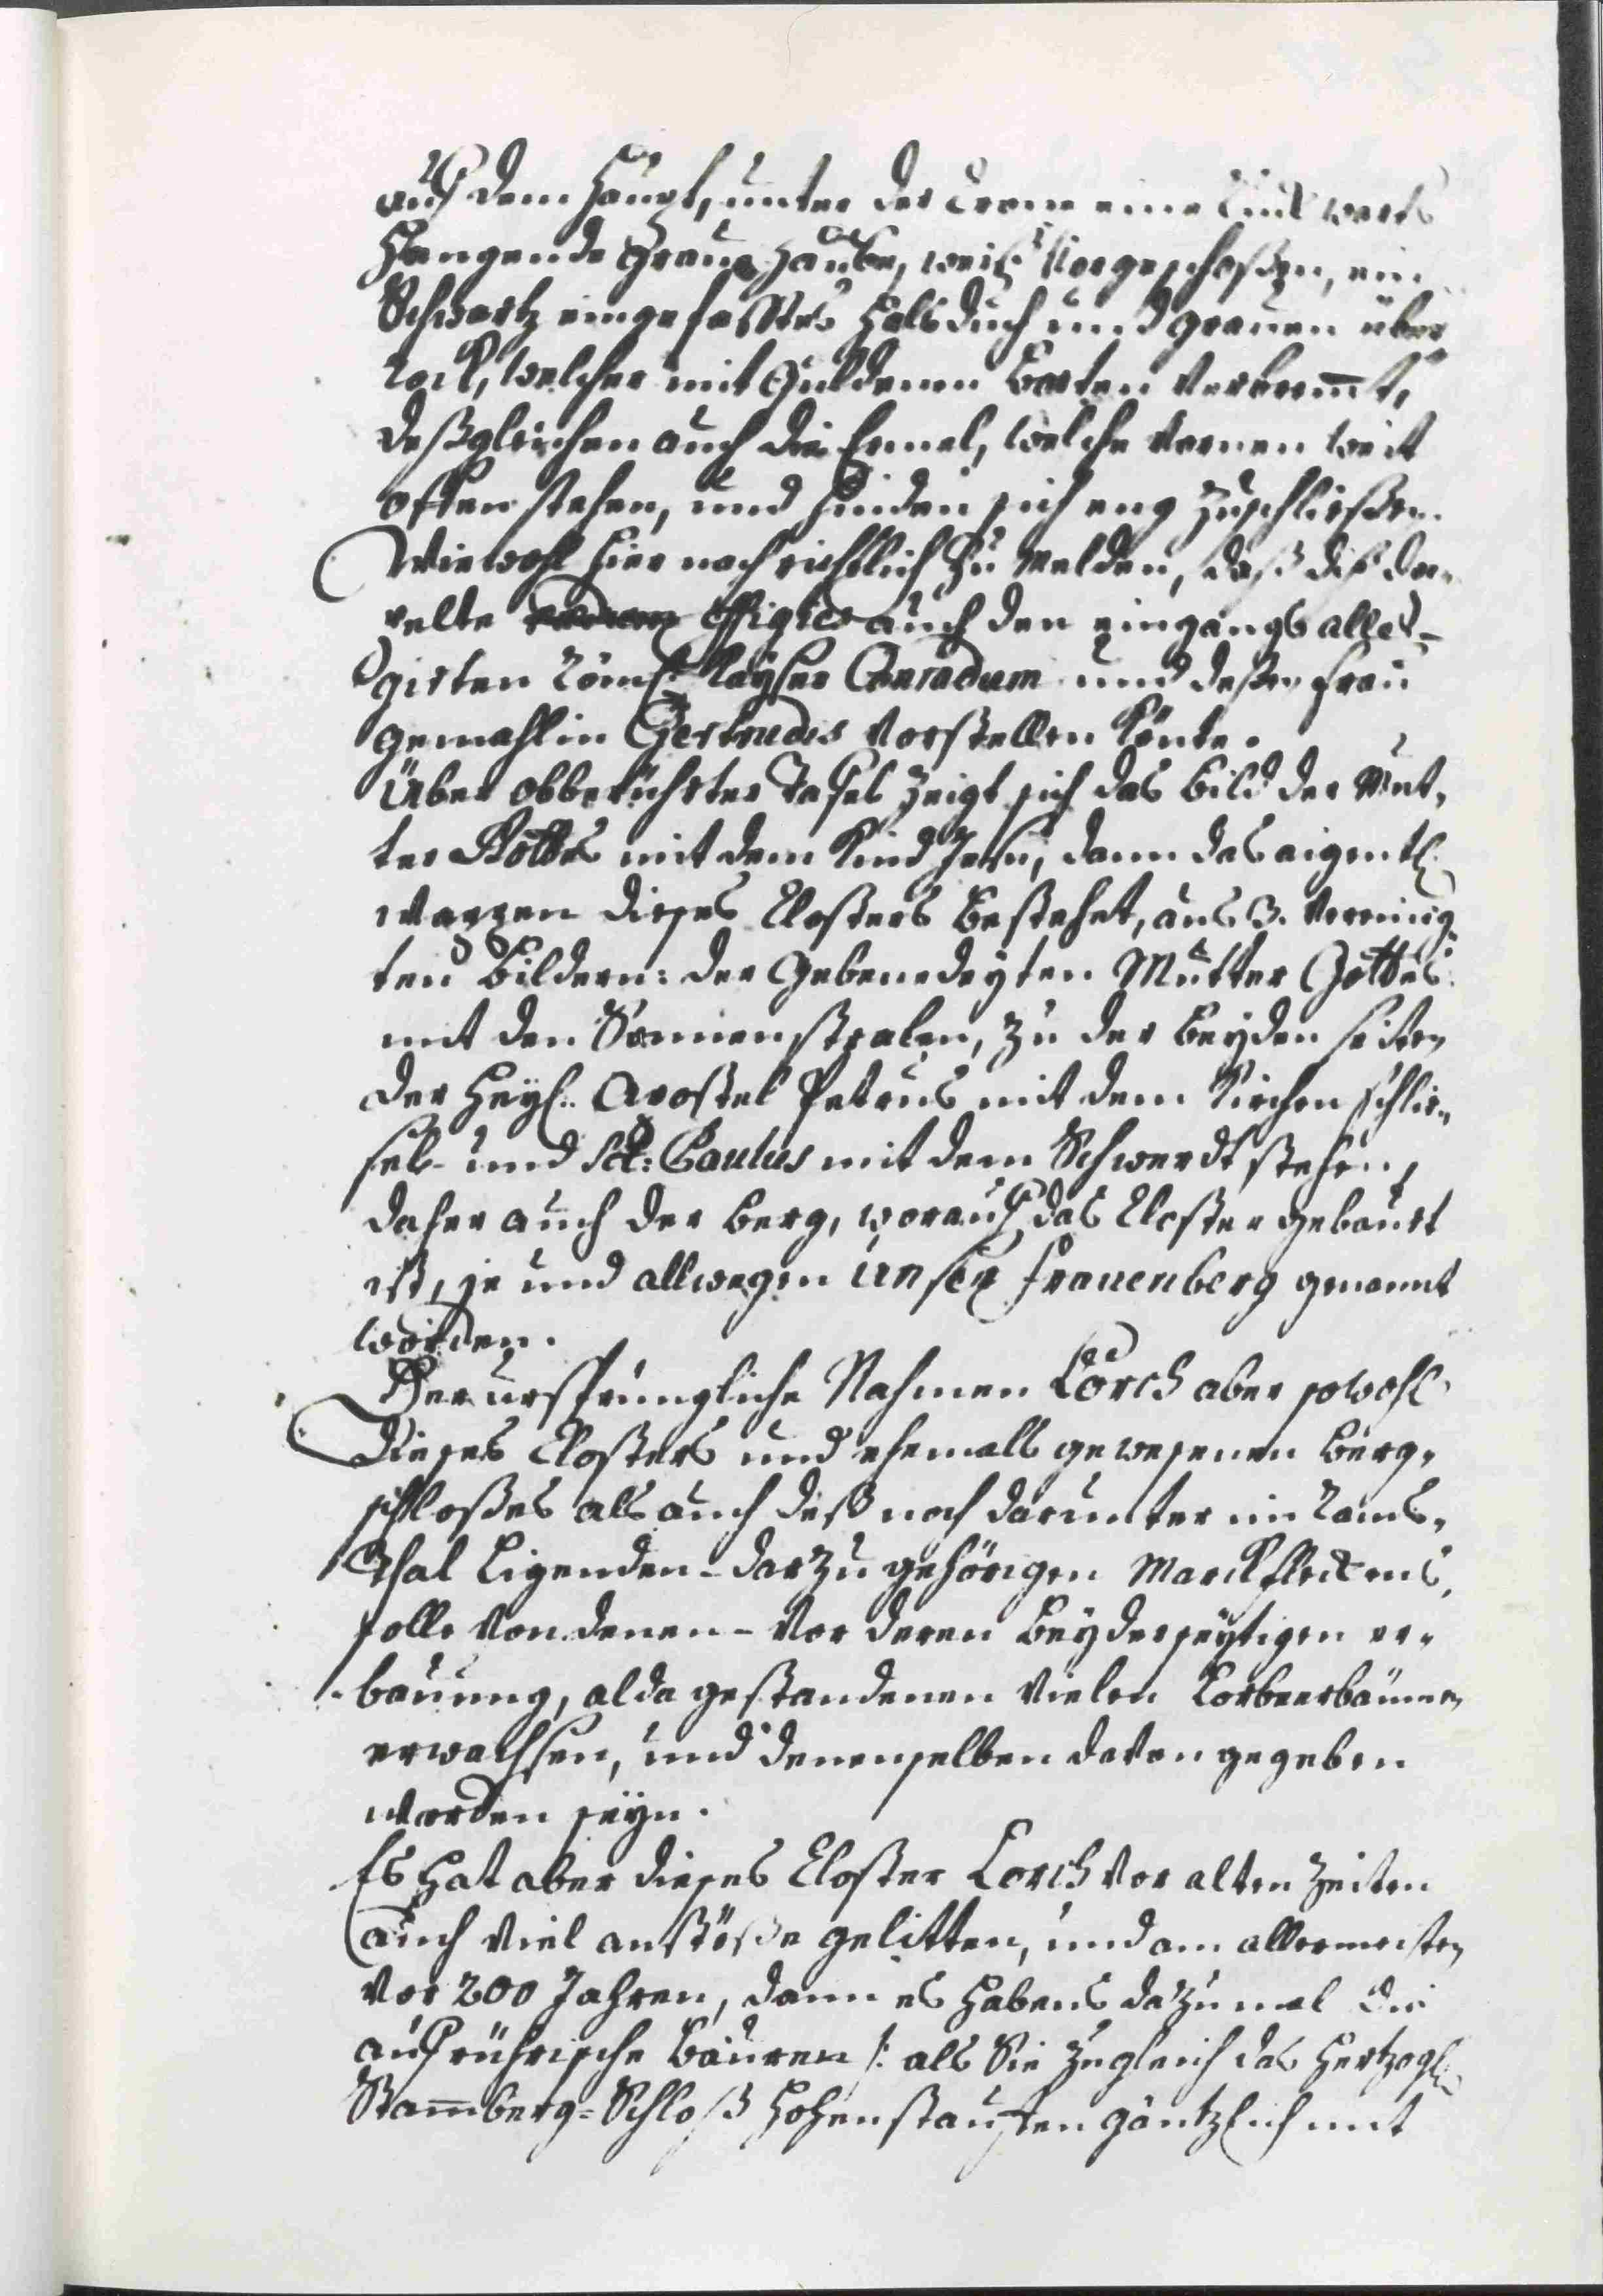 auf dem Haupt, unter der Cron eine Linckwerts
Hangende Graue Haube, weiß Vorgeschoßen, ein
Schwartz eingefasstes Halsduch und grauen über
rock, welcher mit Guldenen Borten Verbremt,
deßgleichen auch die Ermel, welche Vornen weit
offen stehen, und hinden sich eng zuschließen.
Wiewohl hier nachrichtlich zu Melden, daß diß do„
pelte effigies auch den eingangs alle„
girten Röm. Kayser Conradum und deßen frau
gemahlin Gertrudis Vorstellen könte.
Über obberührter Tafel zeigt sich das Bild der Mut„
ter Gottes mit dem Kind Jesu, dann das aigentl.
Wappen dieses Closters bestehet, aus 3. Vereinig„
ten Bildern: der Gebenedeyten Mutter Gottes
mit den Sonnenstralen, zu der beyden seiten
der Heyl. Apostel Petrus mit dem Kirchen schlie„
sel- und Sct: Paulus mit dem Schwerdt stehen,
daher auch der berg, worauf das Closter gebauet
ist, je und allwegen Unser frauenberg genannt
worden.
Der ursprüngliche Nahmen Lorch aber sowohl
dieses Closters und ehemalls gewesenen Burg„
schloßes als auch deß noch darunter im Rams„
Thal Ligenden- darzu gehörigen Marckfleckens,
solle Von denen- Vor deren beyderseytigen er„
bauung, alda gestandenen Vielen Lorbeerbäumen
erwachsen, und denenselben davon gegeben
worden seyn.
Es Hat aber dieses Closter Lorch Vor alten Zeiten
auch Viel anstöße gelitten, und am allermeisten
Vor 200 Jahren, dann es Habens dazumal die
aufrührische Bauren /: als Sie zugleich das Hertzogl.
Stammberg-Schloß Hohenstauffen gäntzlich mit